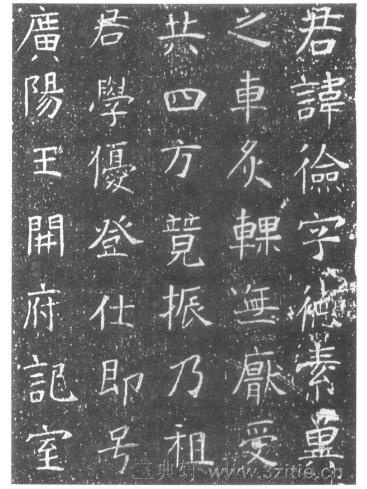 君諱儉字德素
之車炙輠無厭受
共四方竟振乃祖
君學優登仕即号
廣陽王開府記室
www.3zitie.cn